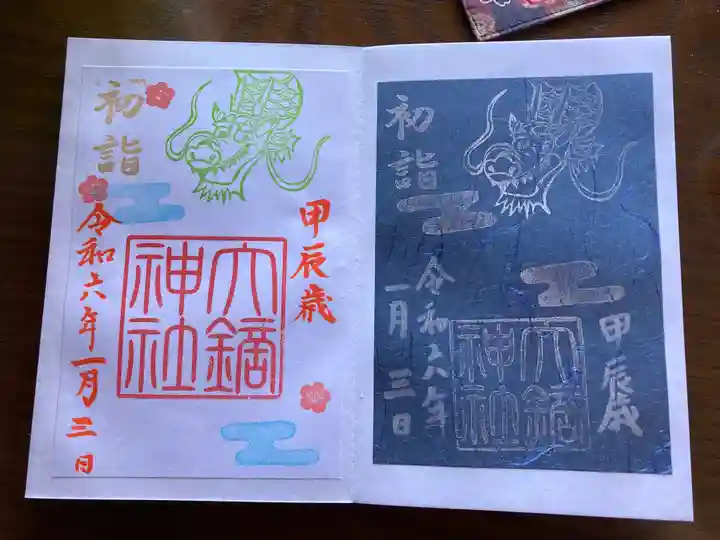 初詣
甲辰歳
大鏑
神社
令和六年一月三日
初詣
甲辰歳
大鏑
神社
令和六年
一月三日